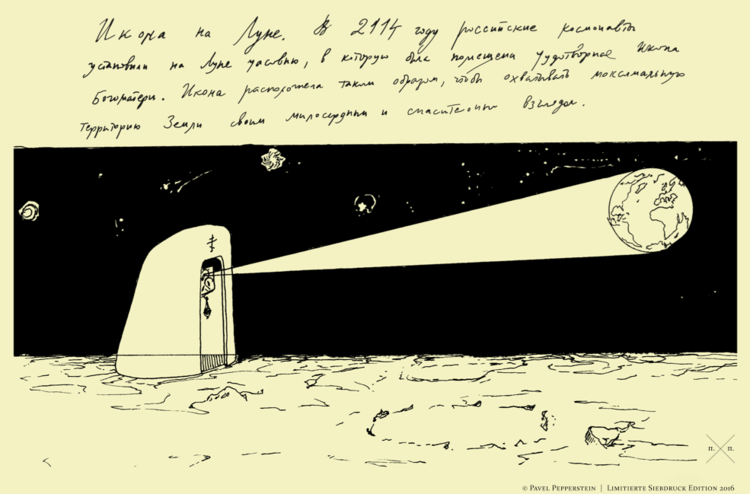 Икона на Луне. В 2114 году российские космонавты
установили на Луне часовню, в которую была помещена чудотворная икона
Богоматери. Икона расположена таким образом, чтобы охватывать максимальную
территорию Земли своим милосердным и спасительным взглядом.
п. п.
© Pavel Pepperstein | Limitierte Siebdruck Edition 2016